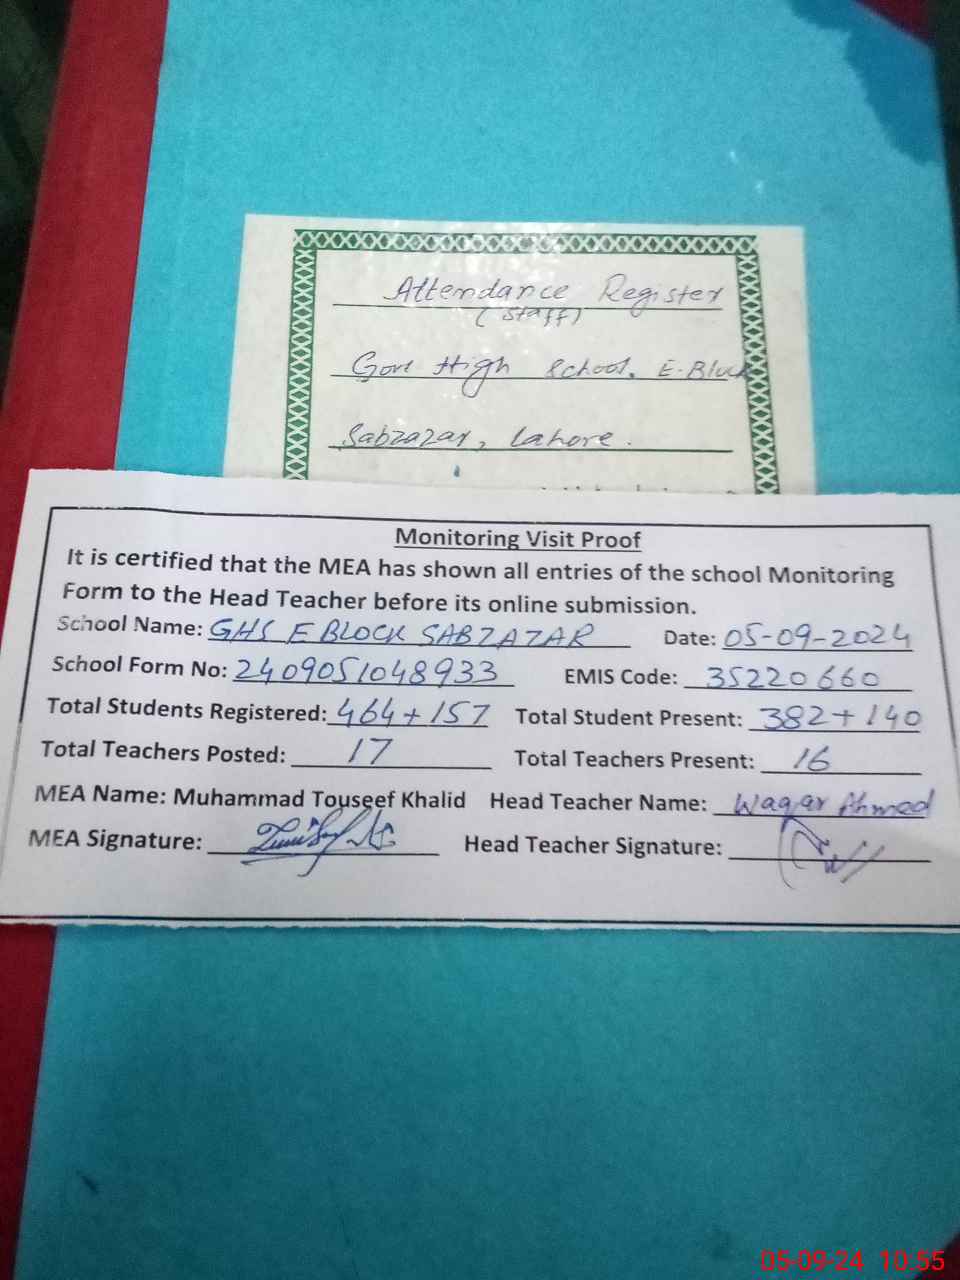 Attendance Register
(Staff)
Govt High School, E-Block
Sabzazar, Lahore.
Monitoring Visit Proof
It is certified that the MEA has shown all entries of the school Monitoring
Form to the Head Teacher before its online submission.
School Name: GHS E BLOCK SABZAZAR Date: 05-09-2024
School Form No: 2409051048933 EMIS Code: 35220660
Total Students Registered: 464+157 Total Student Present: 382+140
Total Teachers Posted: 17 Total Teachers Present: 16
MEA Name: Muhammad Touseef Khalid Head Teacher Name: Waqar Ahmed
MEA Signature: Head Teacher Signature:
05-09-24 10.55